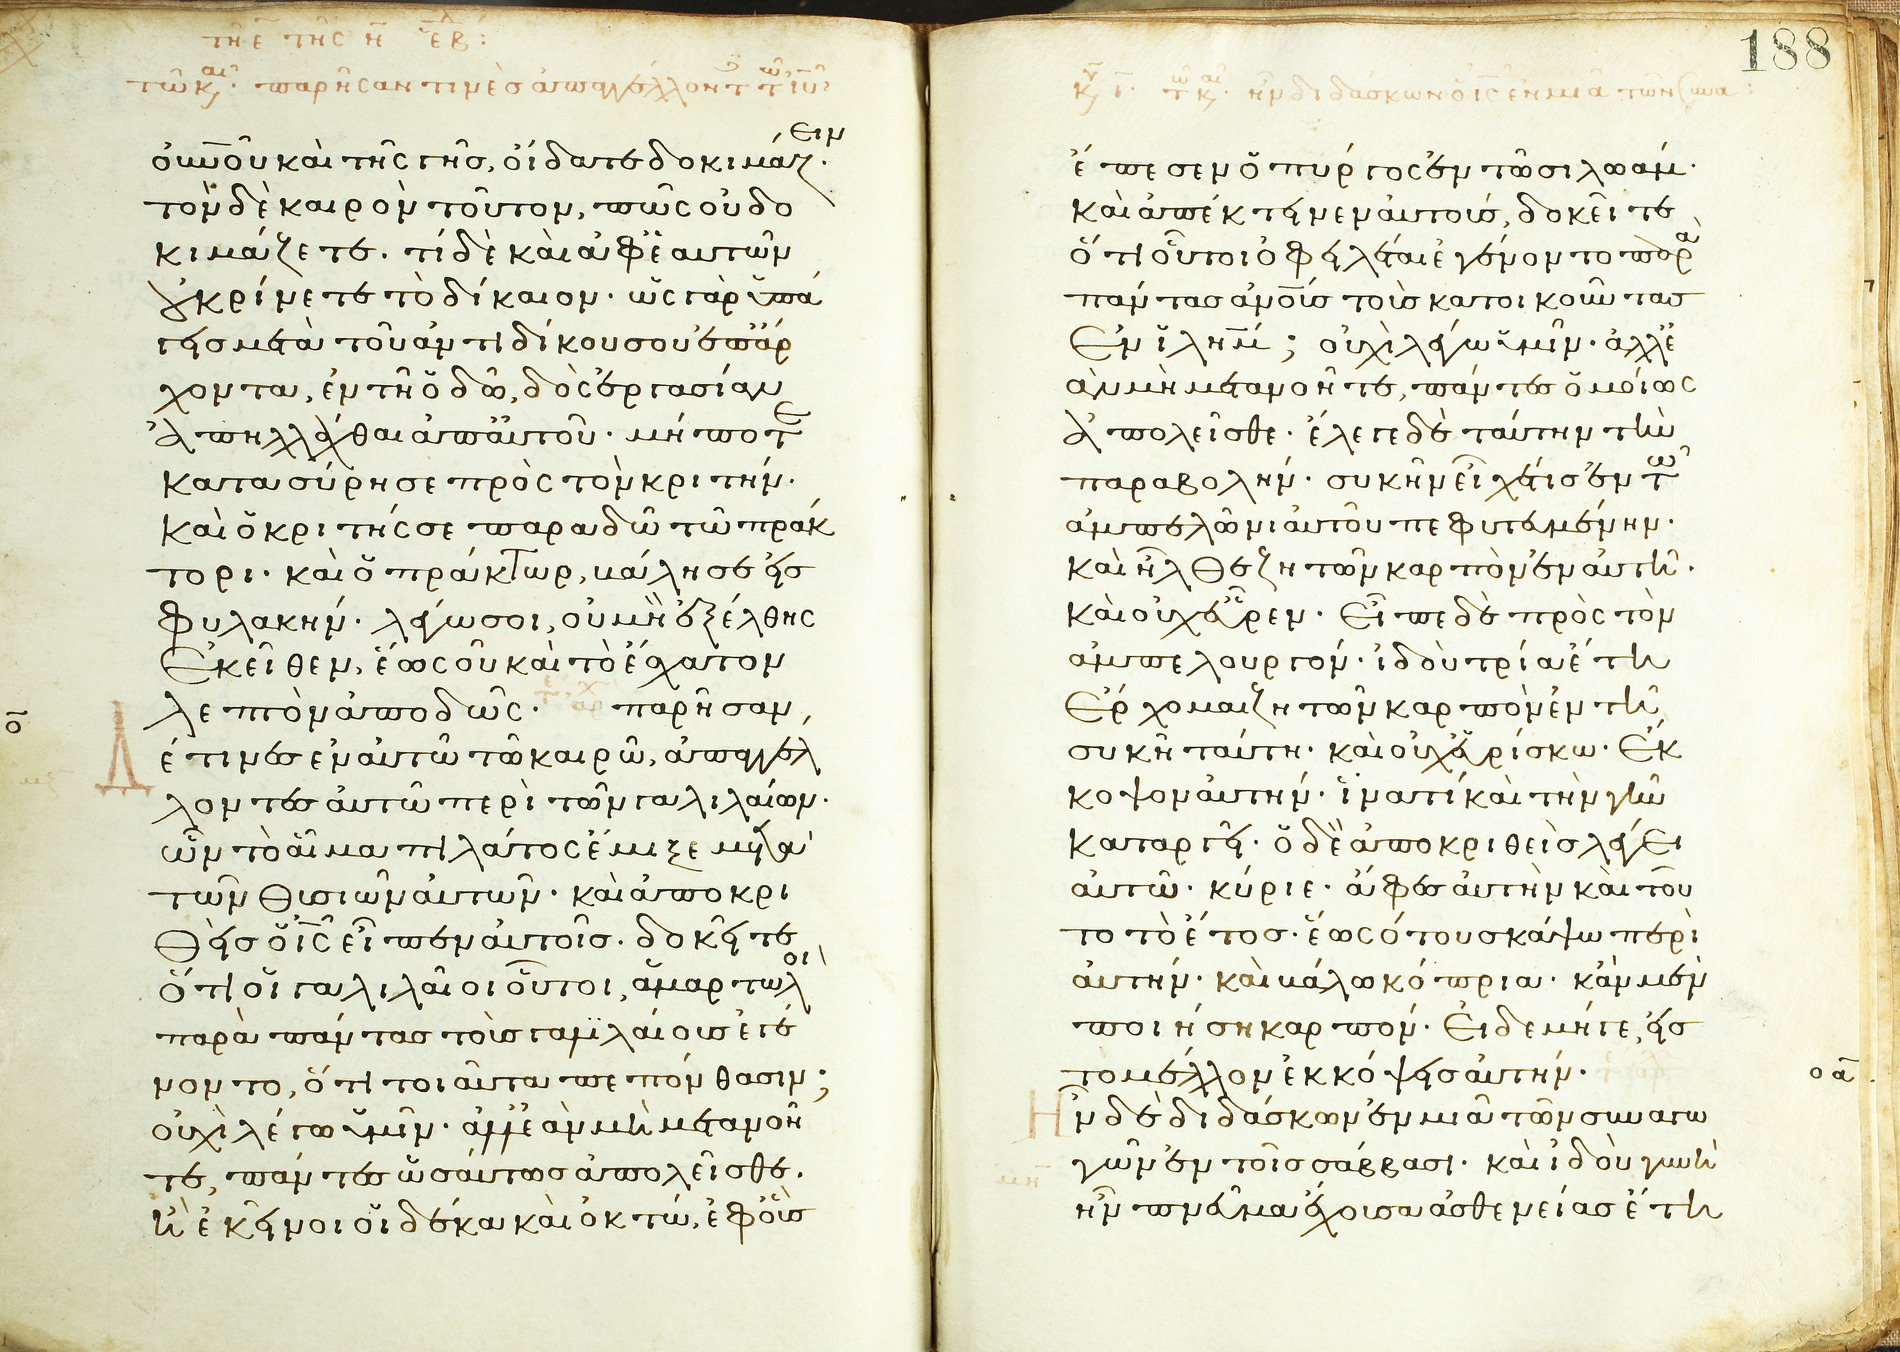 τῇ ε τῆς η ἑβδ:
τῶ κ αι. παρῆσαν τινὲσ ἀπαγγέλλοντ τῶ ιυ
οὐνοῦ καὶ τῆς γῆσ, οἴδατε δοκιμάζειν.
τὸν δὲ καιρὸν τοῦτον, πῶς οὐ δο
κιμάζετε. τί δὲ καὶ ἀφ' ἑαυτῶν
οὐ κρίνετε τὸ δίκαιον. ὡς γὰρ ὑπά
γεισ μετὰ τοῦ ἀντιδίκου σου ἐπ' ἄρ
χοντα, ἐν τῆ ὁδῶ, δὸς ἐργασίαν
ἀπηλλάχθαι ἀπ' αὐτοῦ. μήποτε
κατασύρη σε πρὸς τὸν κριτήν.
καὶ ὁ κριτής σε παραδῶ τῶ πράκ
τορι. καὶ ὁ πράκτωρ, βάλη σε εἰσ
φυλακήν. λέγω σοι, οὐ μὴ ἐξέλθης
ἐκεῖθεν, ἕως οὗ καὶ τὸ ἔσχατον
λεπτὸν ἀποδῶς. τέλ ἀρχ παρῆσαν
δέ τινεσ ἐν αὐτῶ τῶ καιρῶ, ἀπαγγέλ
λοντεσ αὐτῶ περὶ τῶν γαλιλαίων.
ὧν τὸ αἷμα πιλάτος ἔμιξε μετὰ
τῶν θυσιῶν αὐτῶν. καὶ ἀποκρι
θεὶσ ὁ ις εἶπεν αὐτοῖσ. δοκεῖτε
ὅτι οἱ γαλιλαῖοι οὗτοι, ἁμαρτωλοὶ
παρὰ πάντασ τοὺσ γαλιλαίουσ ἐγέ
νοντο, ὅτι τοιαῦτα πεπόνθασιν;
οὐχὶ λέγω ὑμῖν. ἀλλ' ἐὰν μὴ μετανοῆ
τε, πάντεσ ὡσάυτωσ ἀπολεῖσθε.
ἢ ἐκεῖνοι οἱ δέκα καὶ ὀκτώ, ἐφ' οὓσ
ο
188
κυ ι. τῶ κ αι. ἦν διδάσκων ὁ ις ἐν μιᾶ τῶν συνα:
ἔπεσεν ὁ πύργος ἐν τῶ σιλωάμ.
καὶ ἀπέκτεινεν αὐτούσ, δοκεῖτε
ὅτι οὗτοι ὀφειλέται ἐγένοντο παρὰ
πάντασ ἀνουσ τοὺσ κατοικοῦντασ
ἐν ἱλημ; οὐχὶ λέγω ὑμῖν. ἀλλ' ἐ
ὰν μὴ μετανοῆτε, πάντεσ ὁμοίως
ἀπολεῖσθε. ἔλεγε δὲ ταύτην τὴν
παραβολήν. συκῆν εἶχέ τισ ἐν τῶ
ἀμπελῶνι αὐτοῦ πεφυτευμένην.
καὶ ἦλθε ζητῶν καρπὸν ἐν αὐτῆ.
καὶ οὐχ εὗρεν. Εἶπε δὲ πρὸς τὸν
ἀμπελουργόν. ἰδοὺ τρία ἔτη
ἔρχομαι ζητῶν καρπὸν ἐν τῆ
συκῆ ταύτη. καὶ οὐχ εὑρίσκω. ἔκ
κοψον αὐτήν. ἵνατί καὶ τὴν γῆν
καταργεῖ. ὁ δὲ ἀποκριθεὶσ λέγει
αὐτῶ. κύριε. ἄφεσ αὐτὴν καὶ τοῦ
το τὸ ἔτοσ. ἕως ὅτου σκάψω περὶ
αὐτήν. καὶ βάλω κόπρια. κἂν μὲν
ποιήση καρπόν. Εἰδεμήγε, εἰσ
τὸ μέλλον ἐκκόψεισ αὐτήν.
Ἦν δὲ διδάσκων ἐν μιᾶ τῶν συναγω
γῶν ἐν τοῖσ σάββασι. καὶ ἰδοὺ γυνὴ
ἦν πνεῦμα ἔχουσα ἀσθενείασ ἔτη
οα